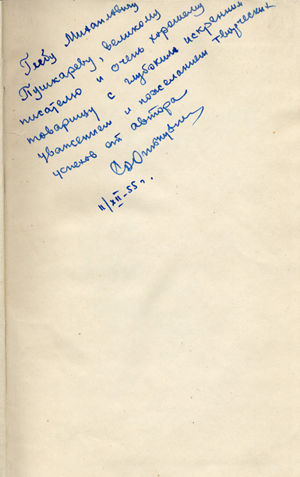 Глебу Михайловичу
Пушкареву, великому
писателю и очень хорошему
товарищу с глубоким искренним
уважением и пожеланием творческих
успехов от автора
11/XII-55 г.